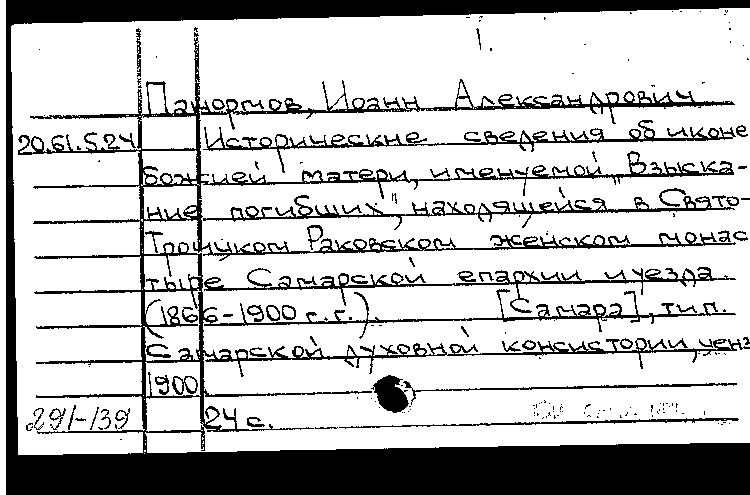 1.
Панормов, Иоанн Александрович
20.61.5.24 Исторические сведения об иконе
божией матери, именуемой „Взыска-
ние погибших", находящейся в Свято-
Троицком Раковском женском монас
тыре Самарской епархии и уезда.
(1866-1900 г.г.). [Самара], тип.
Самарской духовной консистории, ценз
1900.
291-139 24 с.